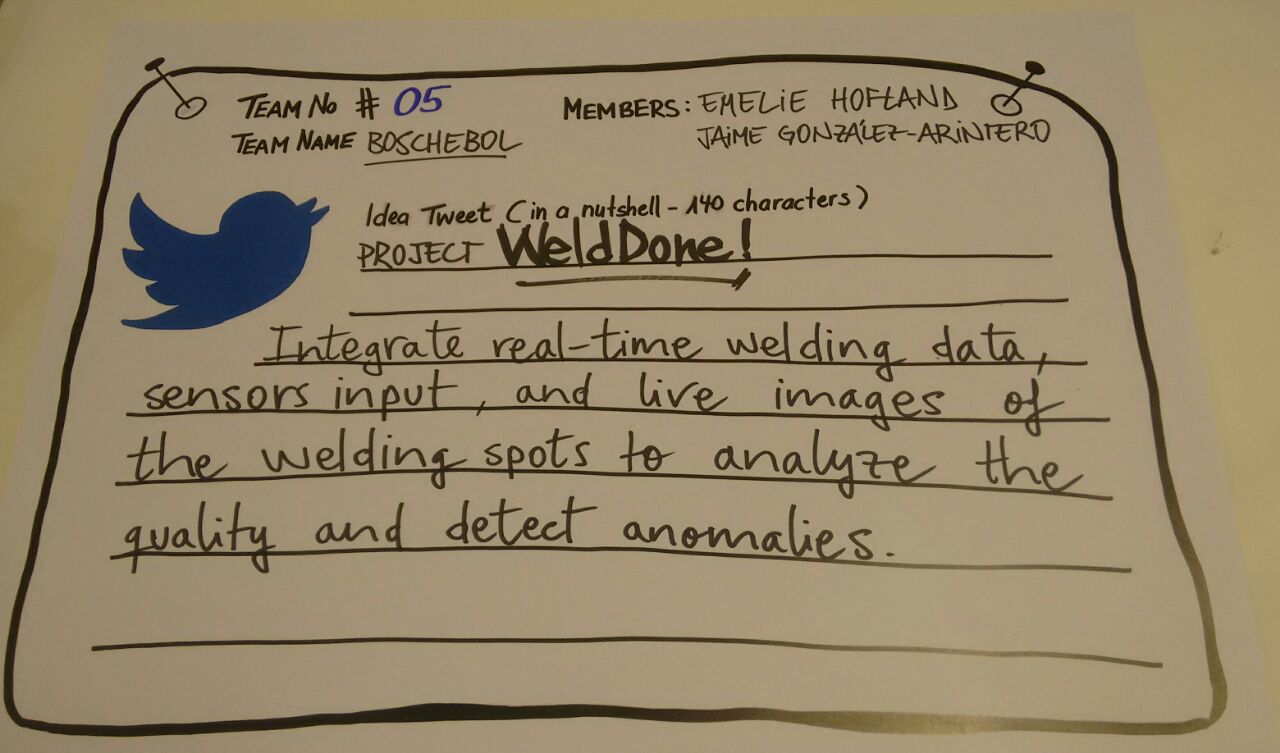 TEAM No # 05
TEAM NAME BOSCHEBOL
MEMBERS: EMELIE HOFLAND
JAIME GONZÁLEZ-ARINTERO
Idea Tweet (in a nutshell - 140 characters)
PROJECT WeldDone!
Integrate real-time welding data,
sensors input, and live images of
the welding spots to analyze the
quality and detect anomalies.